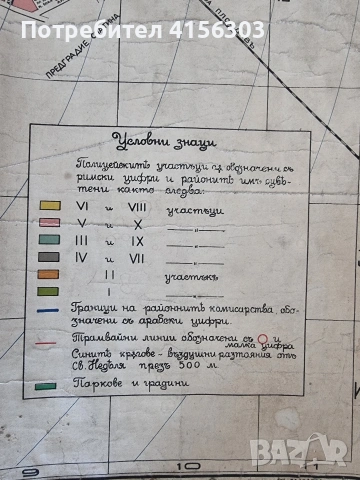 Потребител 4156303
ПРЕДГРАДИЕ
Условни знаци
Полицейскитѣ участъци сѫ обозначени съ
римски цифри и районитѣ имъ оцвѣ-
тени както следва:
VI и VIII участъци
V и X —„—
III и IX —„—
IV и VII —„—
II участъкъ
I —„—
Граници на районнитѣ комисарства, обо-
значени съ арабски цифри.
Трамвайни линии обозначени съ О и
малка цифра
Синитѣ крѫгове - въздушни разтояния отъ
Св. Недѣля презъ 500 м
Паркове и градини
9 10 11
BAZAR